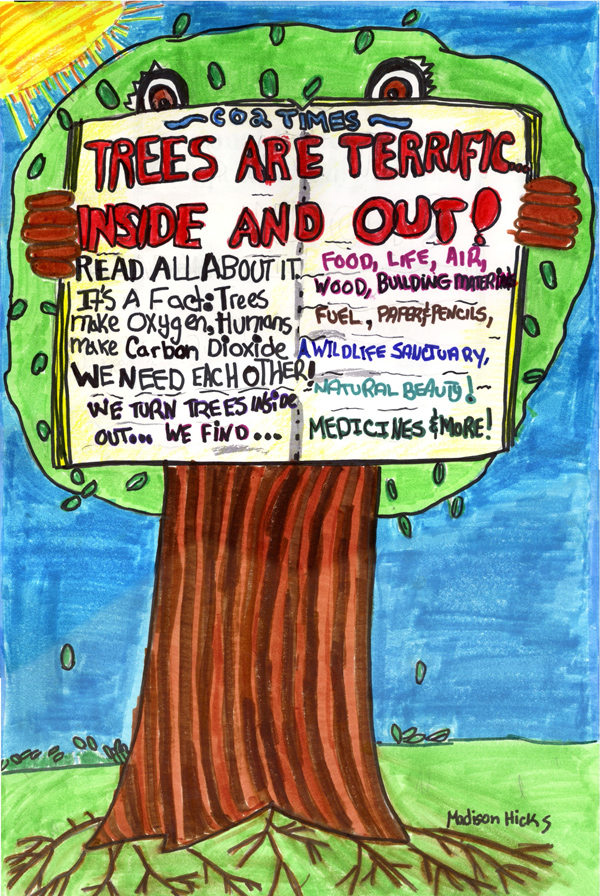 ~ CO2 TIMES ~
TREES ARE TERRIFIC...
INSIDE AND OUT!
READ ALL ABOUT IT.
It's A Fact: Trees
make Oxygen, Humans
make Carbon Dioxide
WE NEED EACH OTHER!
WE TURN TREES INSIDE
OUT... WE FIND...
FOOD, LIFE, AIR,
WOOD, BUILDING MATERIALS
FUEL, PAPER & PENCILS,
A WILDLIFE SANCTUARY,
NATURAL BEAUTY!
MEDICINES & MORE!
Madison Hicks